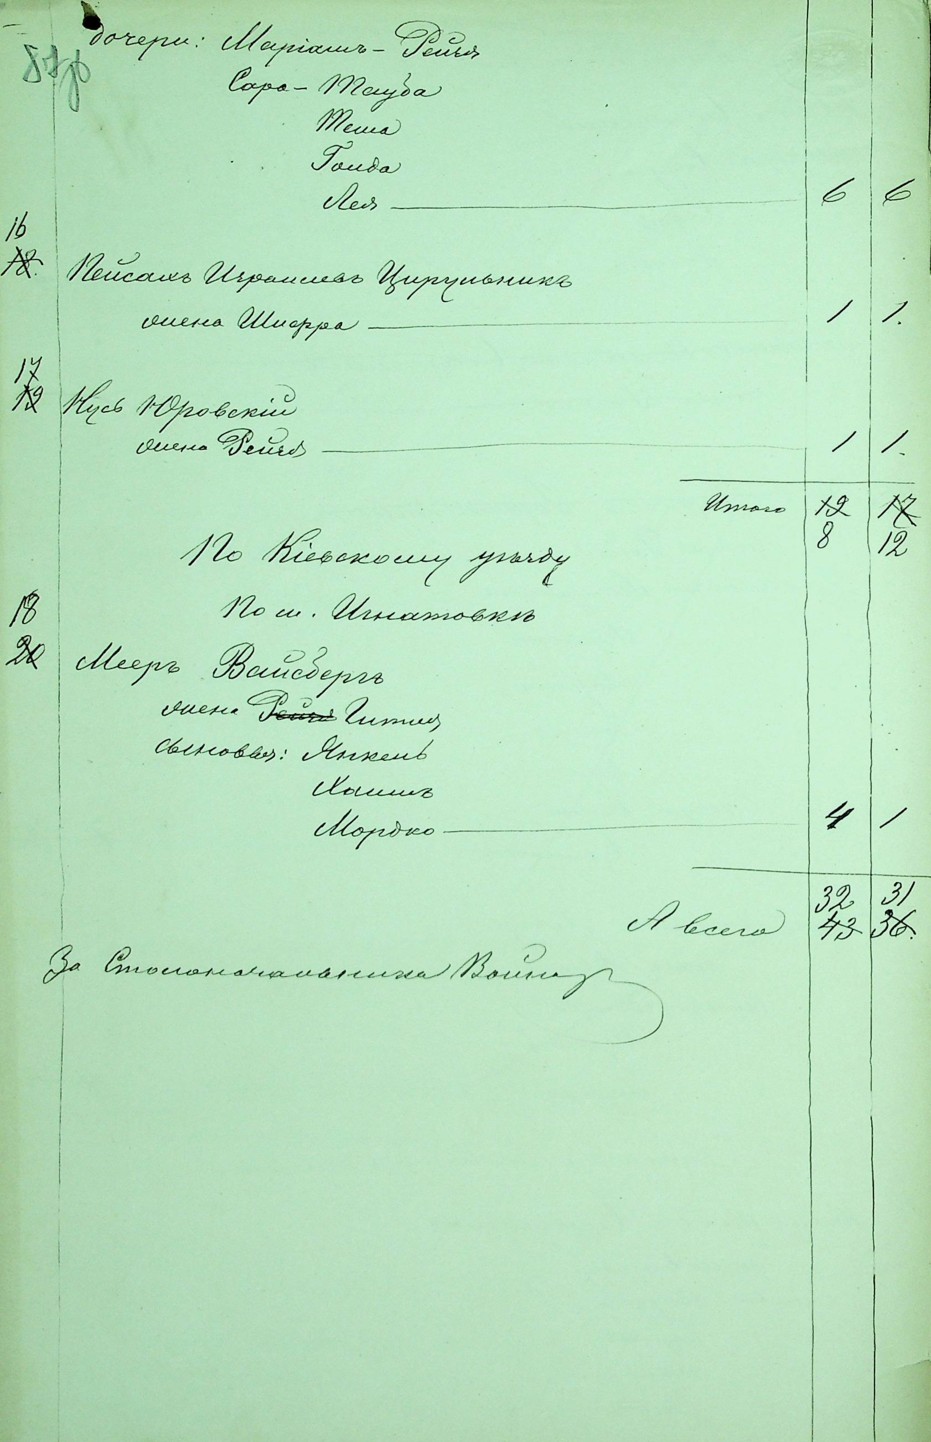 87об
дочери: Маріамъ-Рейзя
Сара-Тауба
Теша
Голда
Лея 6 6
16
18. Пейсахъ Израилевъ Цирульникъ
жена Шифра 1 1.
17
19 Нусь Юровскій
жена Рейзя 1 1.
Итого 19 17
8 12
По Кіевскому уѣзду
18 По м. Игнатовкѣ
20 Мееръ Вайсбергъ
жена Рейзя Гитля
сыновья: Янкель
Хаимъ
Мордко 4 1
32 31
А всего 43 36.
За Столоначальника